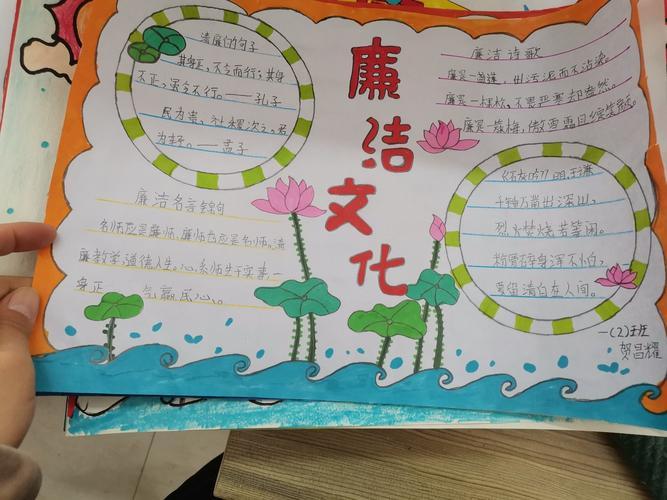 清廉的句子
其身正，不令而行；其身
不正，虽令不行。——孔子
民为贵，社稷次之，君
为轻。——孟子
廉洁文化
廉洁诗歌
廉买一莲，出污泥而不沾染。
廉买一棵松，不畏严寒却盎然。
廉买一簇梅，傲雪霜且绽笑颜。
廉洁名言锦句
名师应是廉师，廉师岂应是名师。清
廉教学，道德人生。心系师生干实事
身正 气赢民心。
《石灰吟》 明 于谦
千锤万凿出深山，
烈火焚烧若等闲。
粉骨碎身浑不怕，
要留清白在人间。
一(2)班
贺昌耀